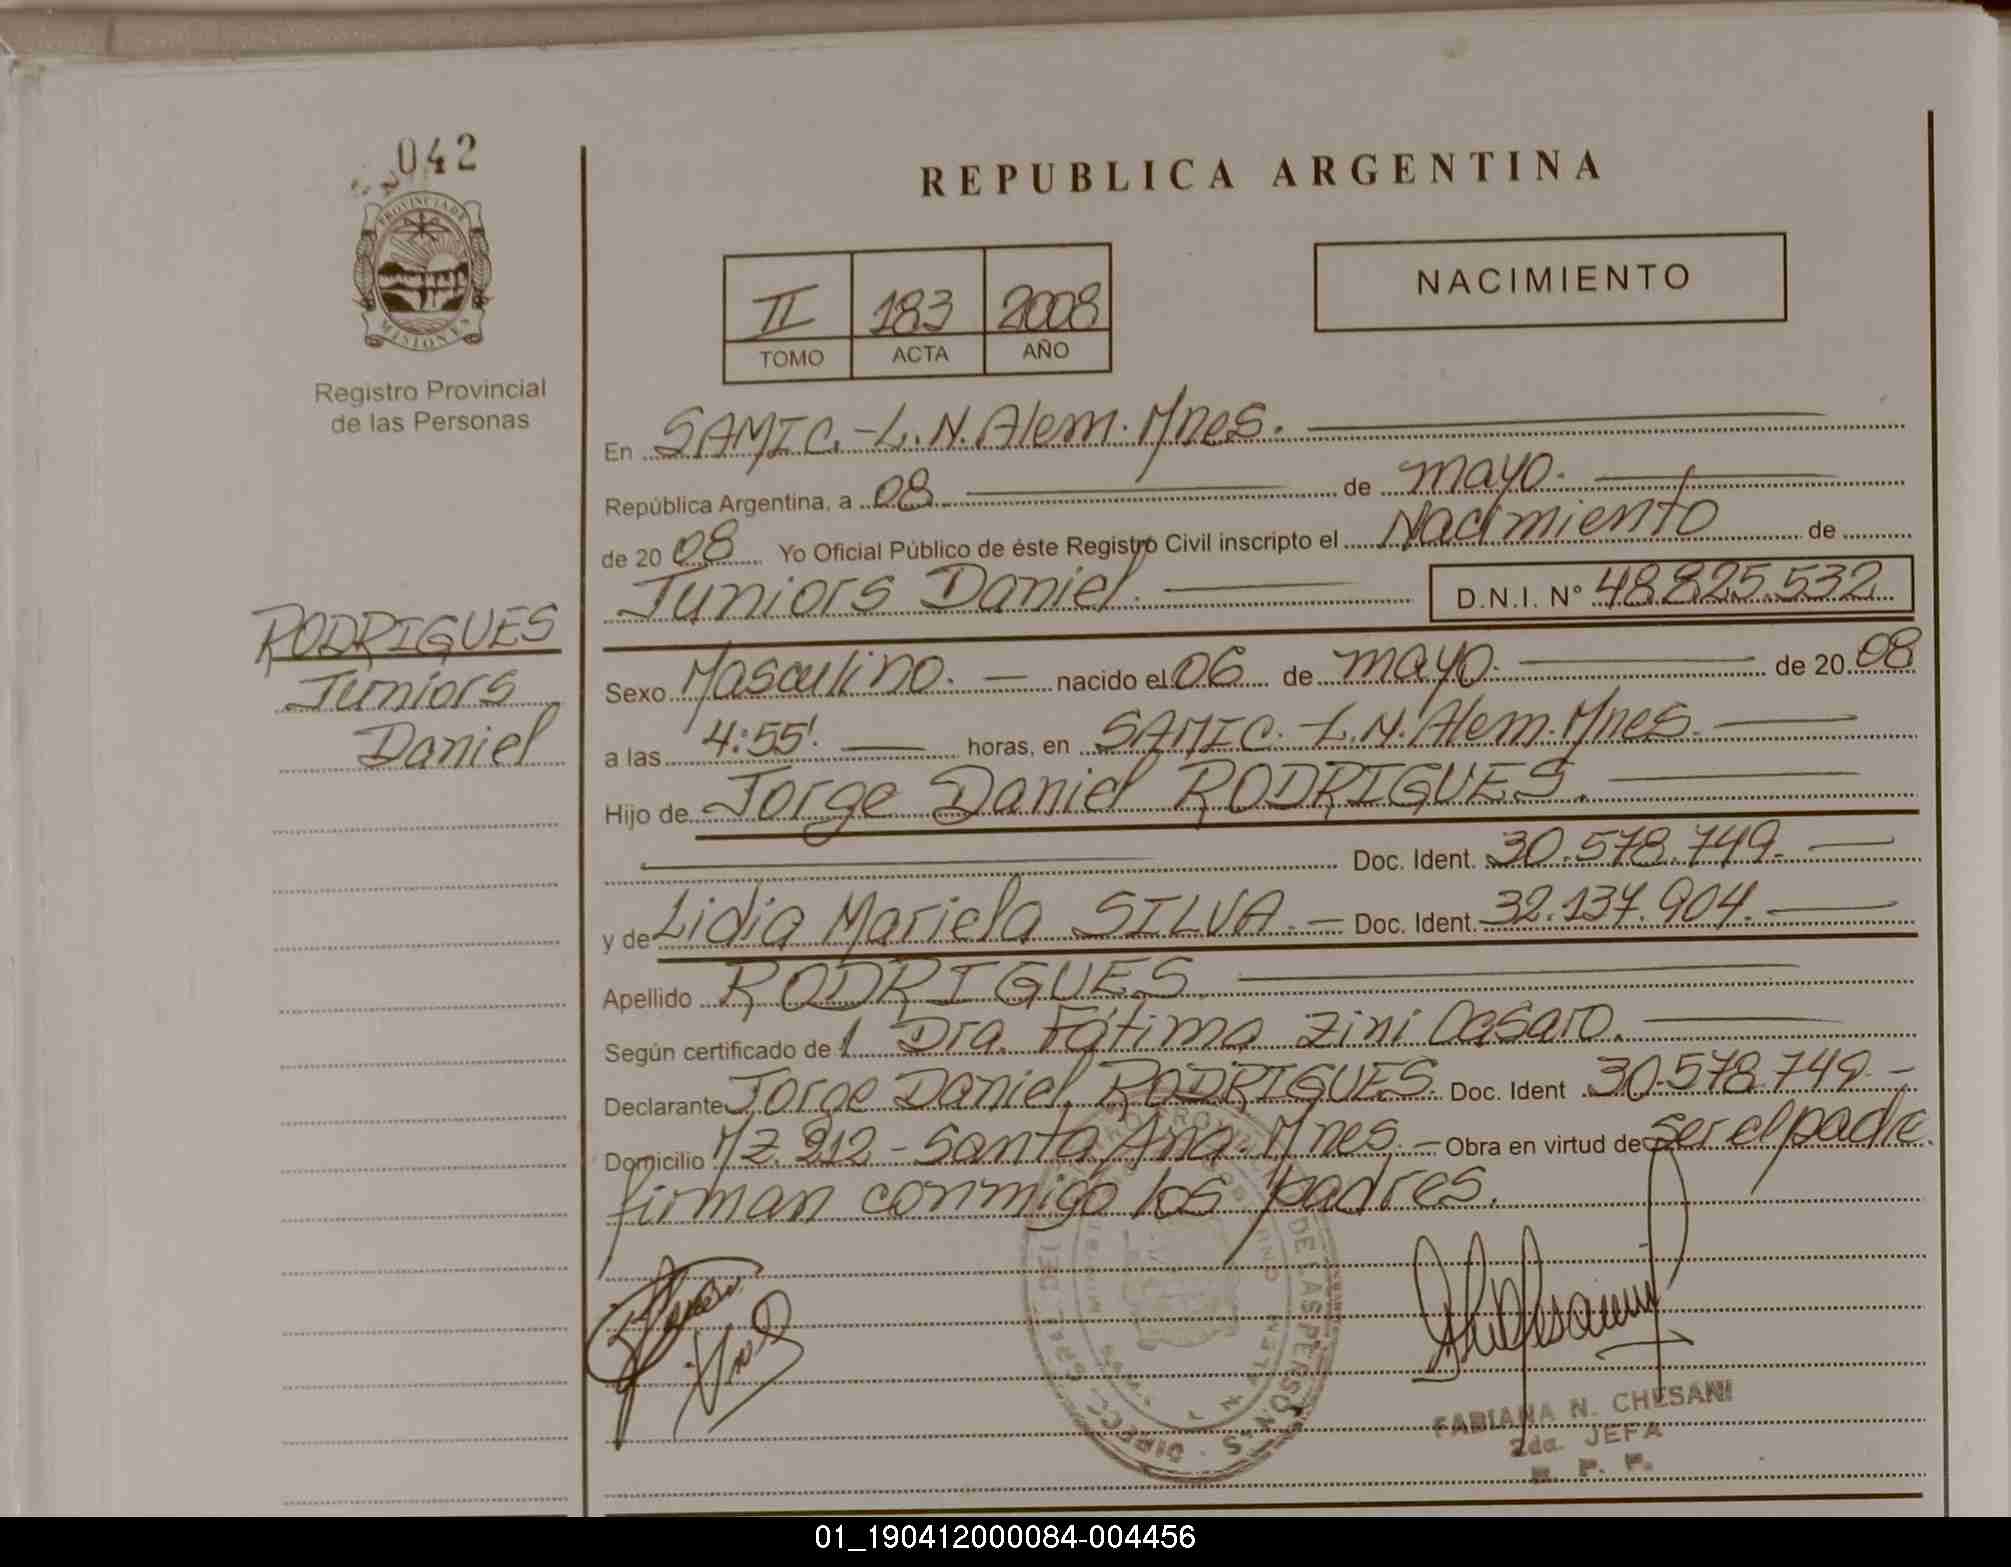 042
PROVINCIA DE
MISIONES
Registro Provincial
de las Personas
RODRIGUES
Juniors
Daniel
REPUBLICA ARGENTINA
II 183 2008
TOMO ACTA AÑO
NACIMIENTO
En SAMIC.-L.N.Alem.Mnes.
República Argentina, a 08 de mayo.
de 2008 Yo Oficial Público de éste Registro Civil inscripto el Nacimiento de
Juniors Daniel. D.N.I. N° 48.825.532
Sexo Masculino. nacido el 06 de mayo. de 2008
a las 4:55'. horas, en SAMIC.-L.N.Alem.Mnes.
Hijo de Jorge Daniel RODRIGUES.
Doc. Ident. 30.578.749.
y de Lidia Mariela SILVA. Doc. Ident. 32.137.904.
Apellido RODRIGUES
Según certificado de l Dra. Fátima Zini Casaro.
Declarante Jorge Daniel RODRIGUES. Doc. Ident 30.578.749.-
Domicilio Mz. 212 - Santa Ana. Mnes. Obra en virtud de ser el padre.
firman conmigo los padres.
DE LAS PERSONAS
FABIANA N. CHESANI
2da. JEFA
R. P. P.
01_190412000084-004456